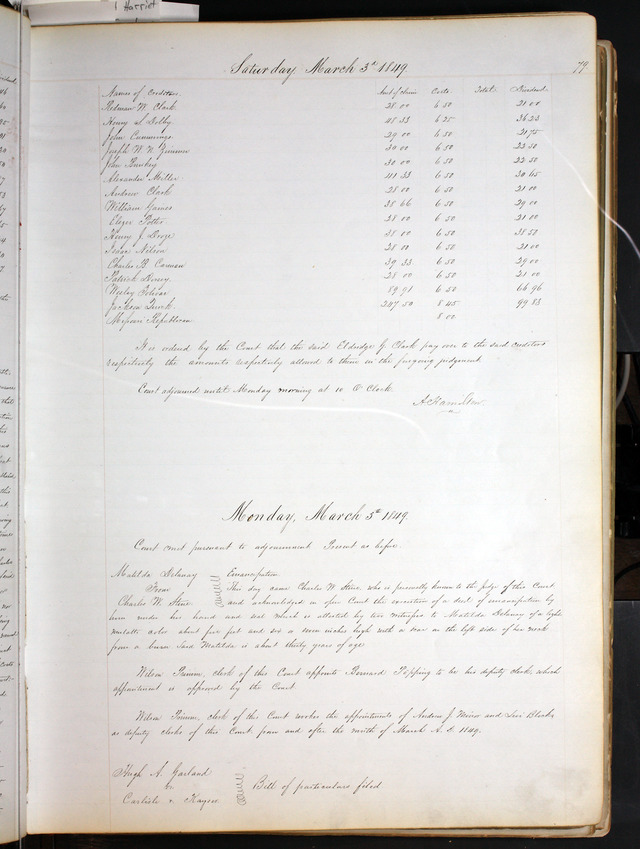 1 Harriet
Saturday, March 3d 1849. 79
Names of Creditors Amt of Claim Costs Total Dividend
Redman W. Clark 28 00 6 50 21 00
Henry S. Dolby 48 33 6 25 36 23
John Cummings 29 00 6 50 21 75
Joseph W. N. 30 00 6 50 22 50
John 30 00 6 50 22 50
Alexander Miller 41 33 6 50 30 65
Andrew Clark 28 00 6 50 21 00
William James 38 66 6 50 29 00
Potts 28 00 6 50 21 00
Henry J. 28 00 6 50 38 50
Isaac Nelson 28 00 6 50 21 00
Charles B. 39 33 6 50 29 00
Patrick 28 00 6 50 21 00
Wesley 89 91 6 50 66 96
Jackson 247 50 8 45 99 83
Missouri Republican 8 00
It is ordered by the Court that the said Eldridge G. Clark pay over to the said creditors
respectively the amounts respectively allowed to them in the forgoing judgement
Court adjourned until Monday morning at 10 O Clock
A Hamilton
Monday, March 5th 1849.
Court met pursuant to adjournment Present as before.
Matilda Delaney Emancipation
From This day came Charles W. Stone, who is personally known to the judge of this Court
Charles W. Stone and acknowledged in open Court the execution of a deed of emancipation by
him under his hand and seal which is attested by two witnesses to Matilda Delaney of a light
mulatto color about five feet and six a seven inches high with a scar on the left side of her neck
from a burn said Matilda is about thirty years of age
Wilson Primm, clerk of this Court appoints Bernard Popping to be his deputy clerk, which
appointment is approved by the Court
Wilson Primm, clerk of this Court revokes the appointments of Andrew J. and Levi
as deputy clerks of this Court from and after the month of March A. D. 1849.
Hugh A. Garland
vs Bill of particulars filed
Carlisle & Kayser